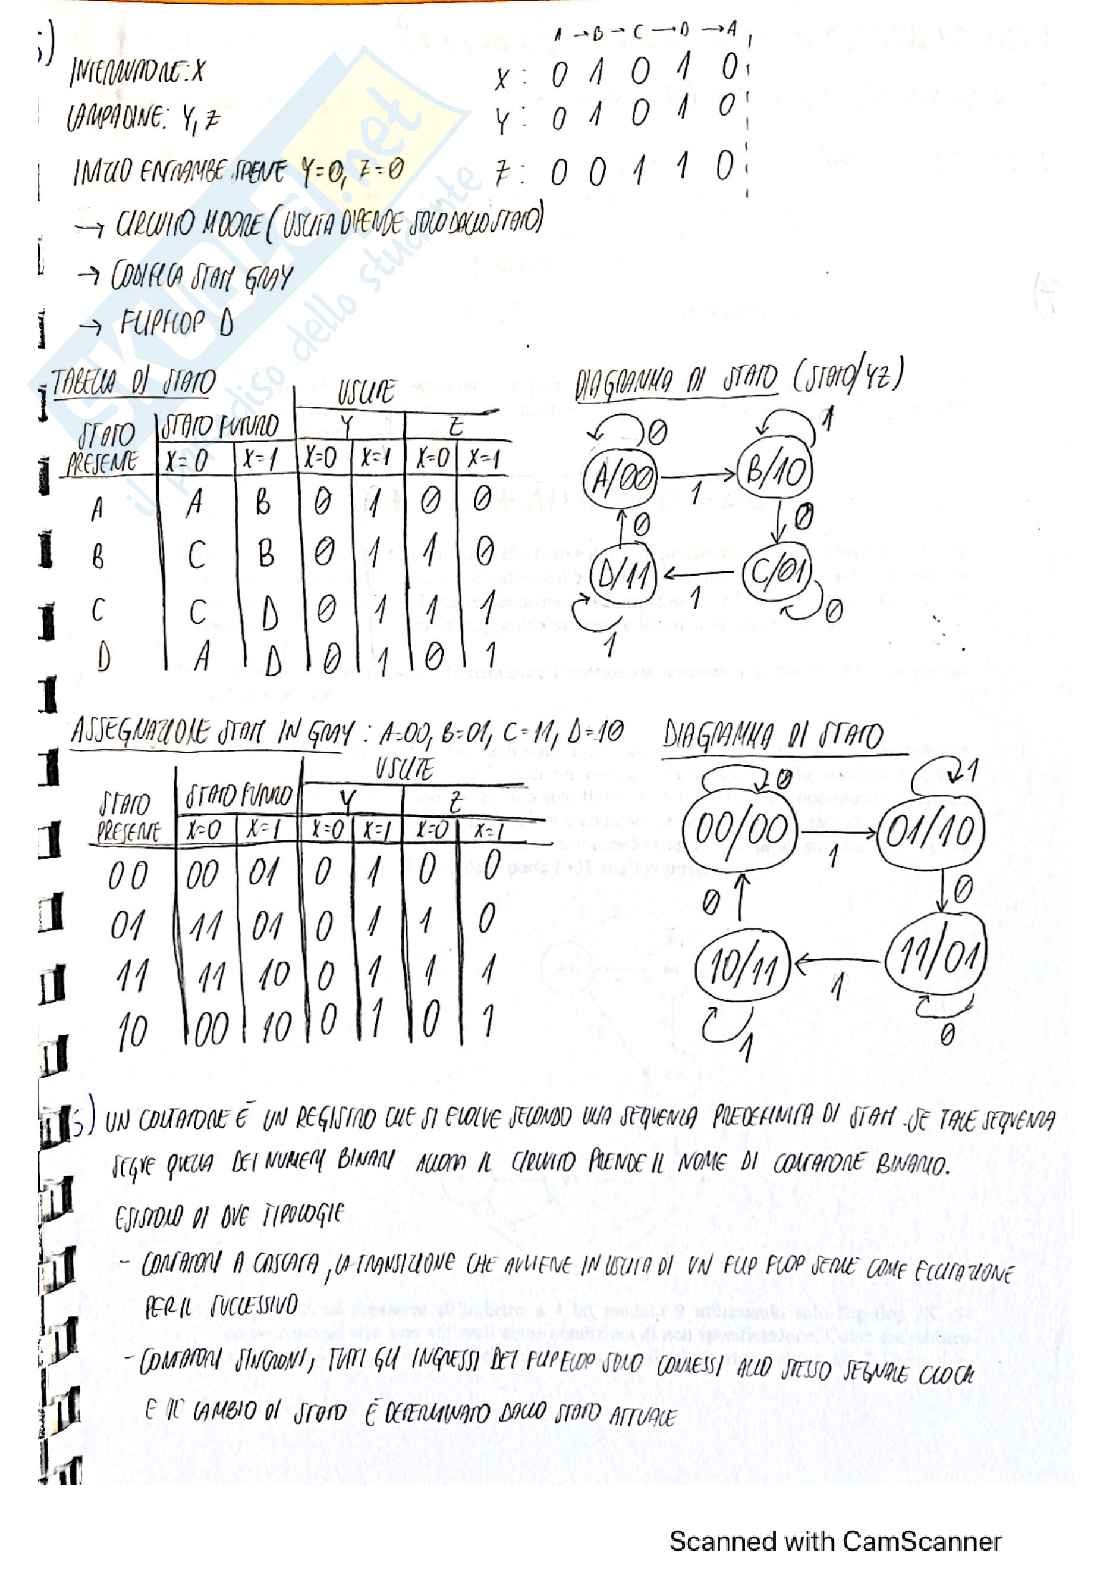 5)
A → B → C → D → A
INTERRUTTORE: X
X: 0 1 0 1 0
LAMPADINE: Y, Z
Y: 0 1 0 1 0
INIZIO ENTRAMBE SPENTE Y=0, Z=0
Z: 0 0 1 1 0
→ CIRCUITO MOORE (USCITA DIPENDE SOLO DALLO STATO)
→ CODIFICA STATI GRAY
→ FLIPFLOP D
SKUOLA.net
il paradiso dello studente
TABELLA DI STATO
DIAGRAMMA DI STATO (STATO/YZ)
USCITE
STATO PRESENTE STATO FUTURO Y Z
X=0 X=1 X=0 X=1 X=0 X=1
A A B 0 1 0 0
B C B 0 1 1 0
C C D 0 1 1 1
D A D 0 1 0 1
0 1
A/00 1 B/10
0 0
D/11 1 C/01
1 0
ASSEGNAZIONE STATI IN GRAY: A=00, B=01, C=11, D=10
DIAGRAMMA DI STATO
USCITE
STATO PRESENTE STATO FUTURO Y Z
X=0 X=1 X=0 X=1 X=0 X=1
00 00 01 0 1 0 0
01 11 01 0 1 1 0
11 11 10 0 1 1 1
10 00 10 0 1 0 1
0 1
00/00 1 01/10
0 0
10/11 1 11/01
1 0
) UN CONTATORE È UN REGISTRO CHE SI EVOLVE SECONDO UNA SEQUENZA PREDEFINITA DI STATI. SE TALE SEQUENZA
SEGUE QUELLA DEI NUMERI BINARI ALLORA IL CIRCUITO PRENDE IL NOME DI CONTATORE BINARIO.
ESISTONO DI DUE TIPOLOGIE
- CONTATORI A CASCATA, LA TRANSIZIONE CHE AVVIENE IN USCITA DI UN FLIP FLOP SERVE COME ECCITAZIONE
PER IL SUCCESSIVO
- CONTATORI SINCRONI, TUTTI GLI INGRESSI DEI FLIPFLOP SONO CONNESSI ALLO STESSO SEGNALE CLOCK
E IL CAMBIO DI STATO È DETERMINATO DALLO STATO ATTUALE
Scanned with CamScanner